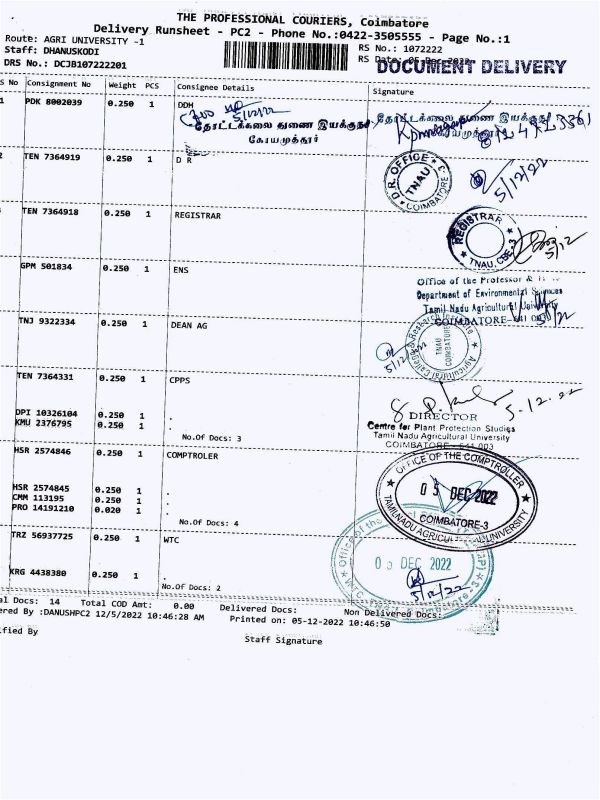 THE PROFESSIONAL COURIERS, Coimbatore
Delivery Runsheet - PC2 - Phone No.:0422-3505555 - Page No.:1
Route: AGRI UNIVERSITY -1
RS No.: 1072222
Staff: DHANUSKODI
RS Date: 05-Dec-2022
DRS No.: DCJB107222201
DOCUMENT DELIVERY
S No Consignment No Weight PCS Consignee Details Signature
1 PDK 8002039 0.250 1 DDH
5/12/22
தோட்டக்கலை துணை இயக்குநர்
கோயமுத்தூர்
தோட்டக்கலை துணை இயக்குநர்
கோயமுத்தூர்
2 TEN 7364919 0.250 1 D R
D.R. OFFICE
TNAU
COIMBATORE-3
5/12/22
TEN 7364918 0.250 1 REGISTRAR
REGISTRAR
TNAU, CBE-3
5/12
GPM 501834 0.250 1 ENS
Office of the Professor &
Department of Environmental Sciences
Tamil Nadu Agricultural University
COIMBATORE-641 003
TNJ 9322334 0.250 1 DEAN AG
Agricultural College & Research Institute
TNAU
COIMBATORE
5/12/22
TEN 7364331 0.250 1 CPPS
5.12.22
DPI 10326104 0.250 1 .
DIRECTOR
KMU 2376795 0.250 1 .
Centre for Plant Protection Studies
No.Of Docs: 3
Tamil Nadu Agricultural University
COIMBATORE - 641 003
HSR 2574846 0.250 1 COMPTROLER
OFFICE OF THE COMPTROLLER
05 DEC 2022
COIMBATORE-3
TAMILNADU AGRICULTURAL UNIVERSITY
HSR 2574845 0.250 1 .
CMM 113195 0.250 1 .
PRO 14191210 0.020 1 .
No.Of Docs: 4
TRZ 56937725 0.250 1 WTC
Office of the
05 DEC 2022
5/12/22
KRG 4438380 0.250 1 .
No.Of Docs: 2
al Docs: 14 Total COD Amt: 0.00 Delivered Docs: Non Delivered Docs:
ered By :DANUSHPC2 12/5/2022 10:46:28 AM Printed on: 05-12-2022 10:46:50
ified By
Staff Signature